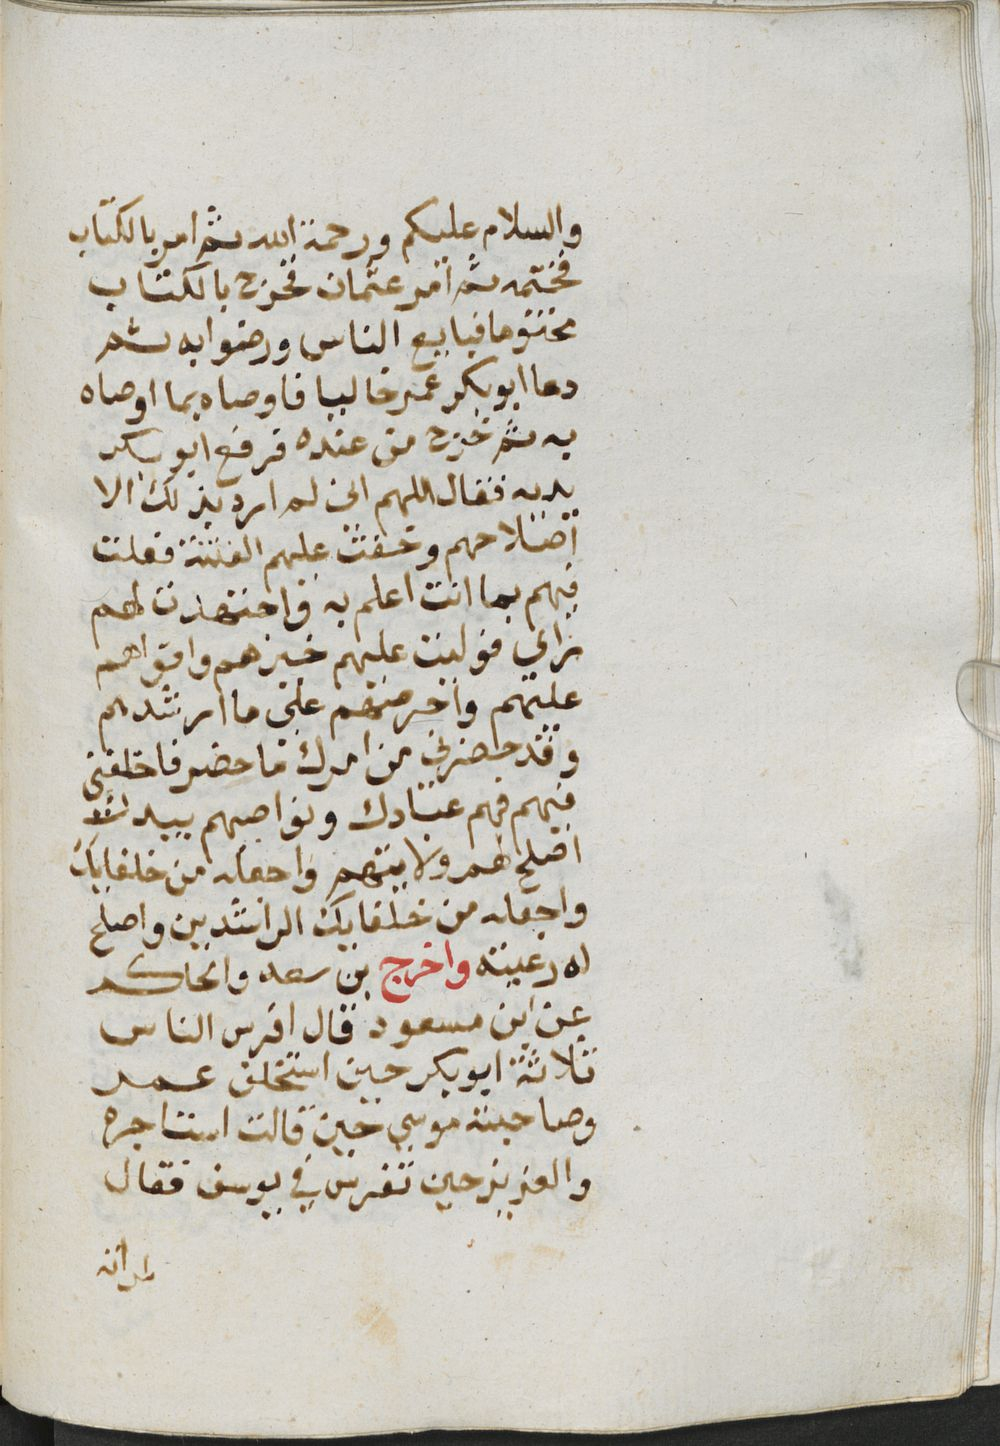 والسلام عليكم ورحمة الله ثم امر بالكتاب
فختمه ثم امر عثمان فخرج بالكتاب
مختوما فبايع الناس ورضوا به ثم
دعا ابو بكر عمر خاليا فاوصاه بما اوصاه
به ثم خرج من عنده فرفع ابو بكر
يديه فقال اللهم انى لم ارد بذلك الا
اصلاحهم وخفت عليهم الفتنة فعلت
فيهم بما انت اعلم به واجتهدت لهم
رايي فوليت عليهم خيرهم واقواهم
عليهم واحرصهم على ما ارشدهم
وقد حضرني من امرك ما حضر فاخلفني
فيهم فهم عبادك ونواصيهم بيدك
اصلح لهم ولايتهم واجعله من خلفايك
واجعله من خلفايك الراشدين واصلح
له رعيته واخرج بن سعد والحاكم
عن ابن مسعود قال افرس الناس
ثلاثة ابو بكر حين استخلف عمر
وصاحبة موسي حين قالت استاجره
والعزيز حين تفرس في يوسف فقال
لامراته